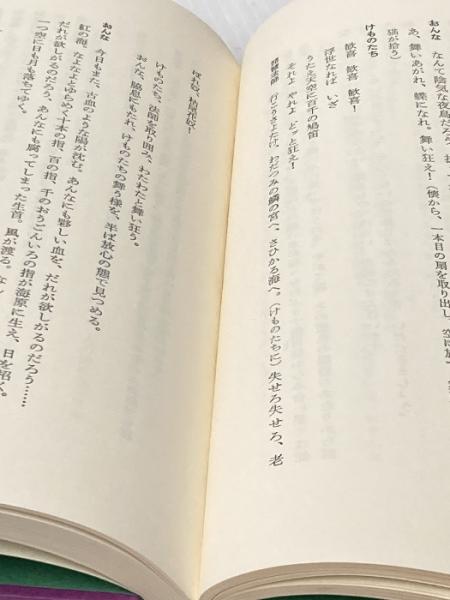 おんな　なんて陰気な夜鳥だろう。
あ、舞いあがれ、蝶になれ。舞い狂え！（懐から、一本目の扇を取り出し、空に放
猫が拾う）
けものたち
歓喜　歓喜　歓喜！
浮世なれば　いざ
うたえ天空に百千の鳩笛
それよ　やれよ　どッと狂え！
行こうさよたけ、わだつみの鱗の宮へ。さひかる海へ。（けものたちに）失せろ失せろ、老
けものたち、法師を取り囲み、わたわたと舞い狂う。
おんな、脇息にもたれ、けものたちの舞う様を、半ば放心の態で見つめる。
おんな　今日もまた、古血のような陽が沈む。あんなにも夥しい血を、だれが欲しがるのだろう……
紅の海、なよなよとゆらめく十本の指、百の指、千のおうごんいろの指が海原に生え、日を招く。
だれが欲しがるのだろう、あんなにも腐ってしまった生首。風が渡る。
一つ空に日も月も落ちてゆく。